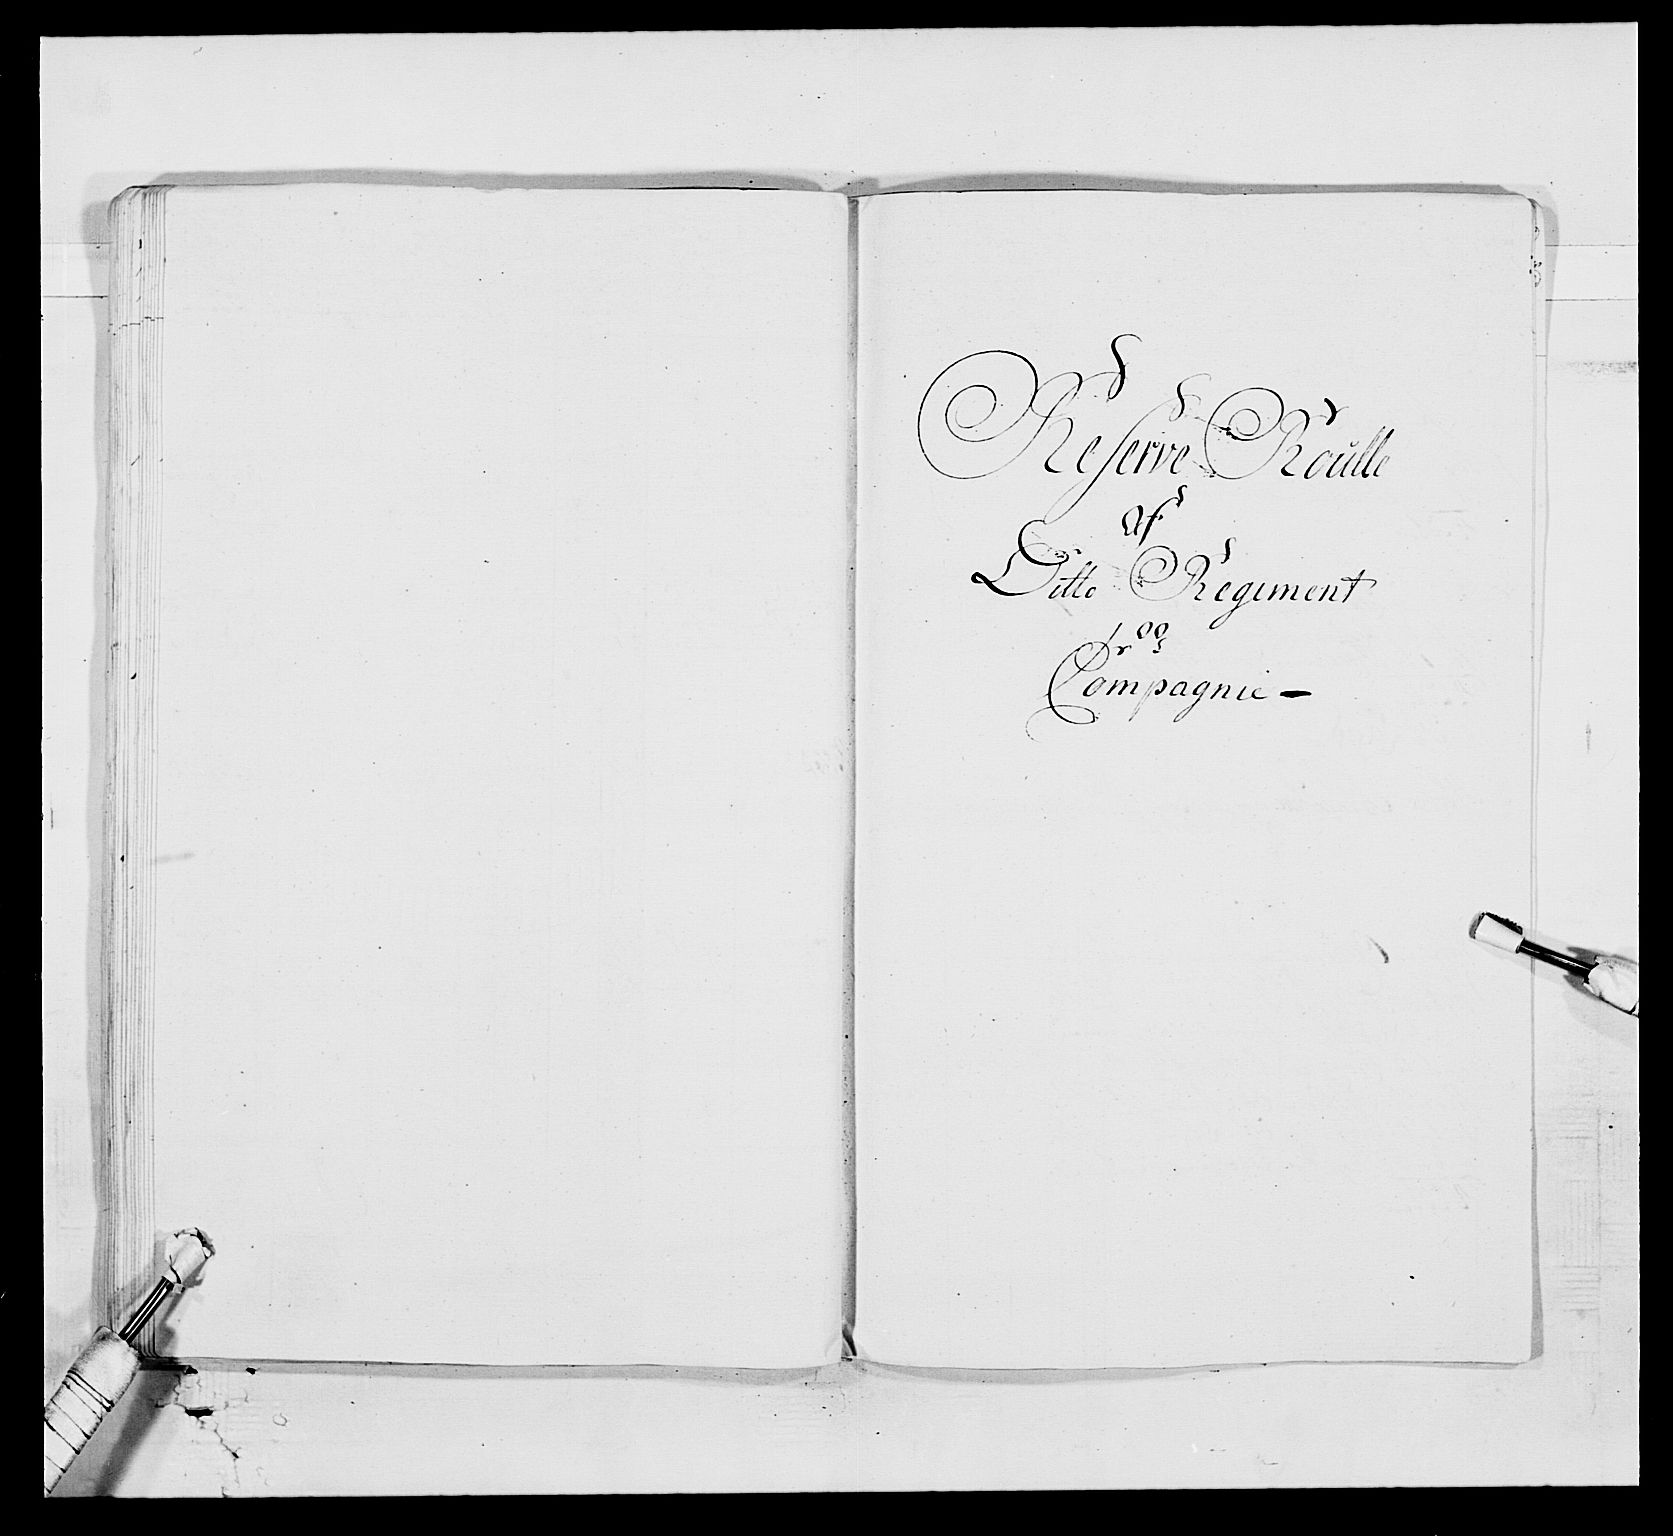 Reserve Roulle
Af
Ditto Regiment
Compagnie —